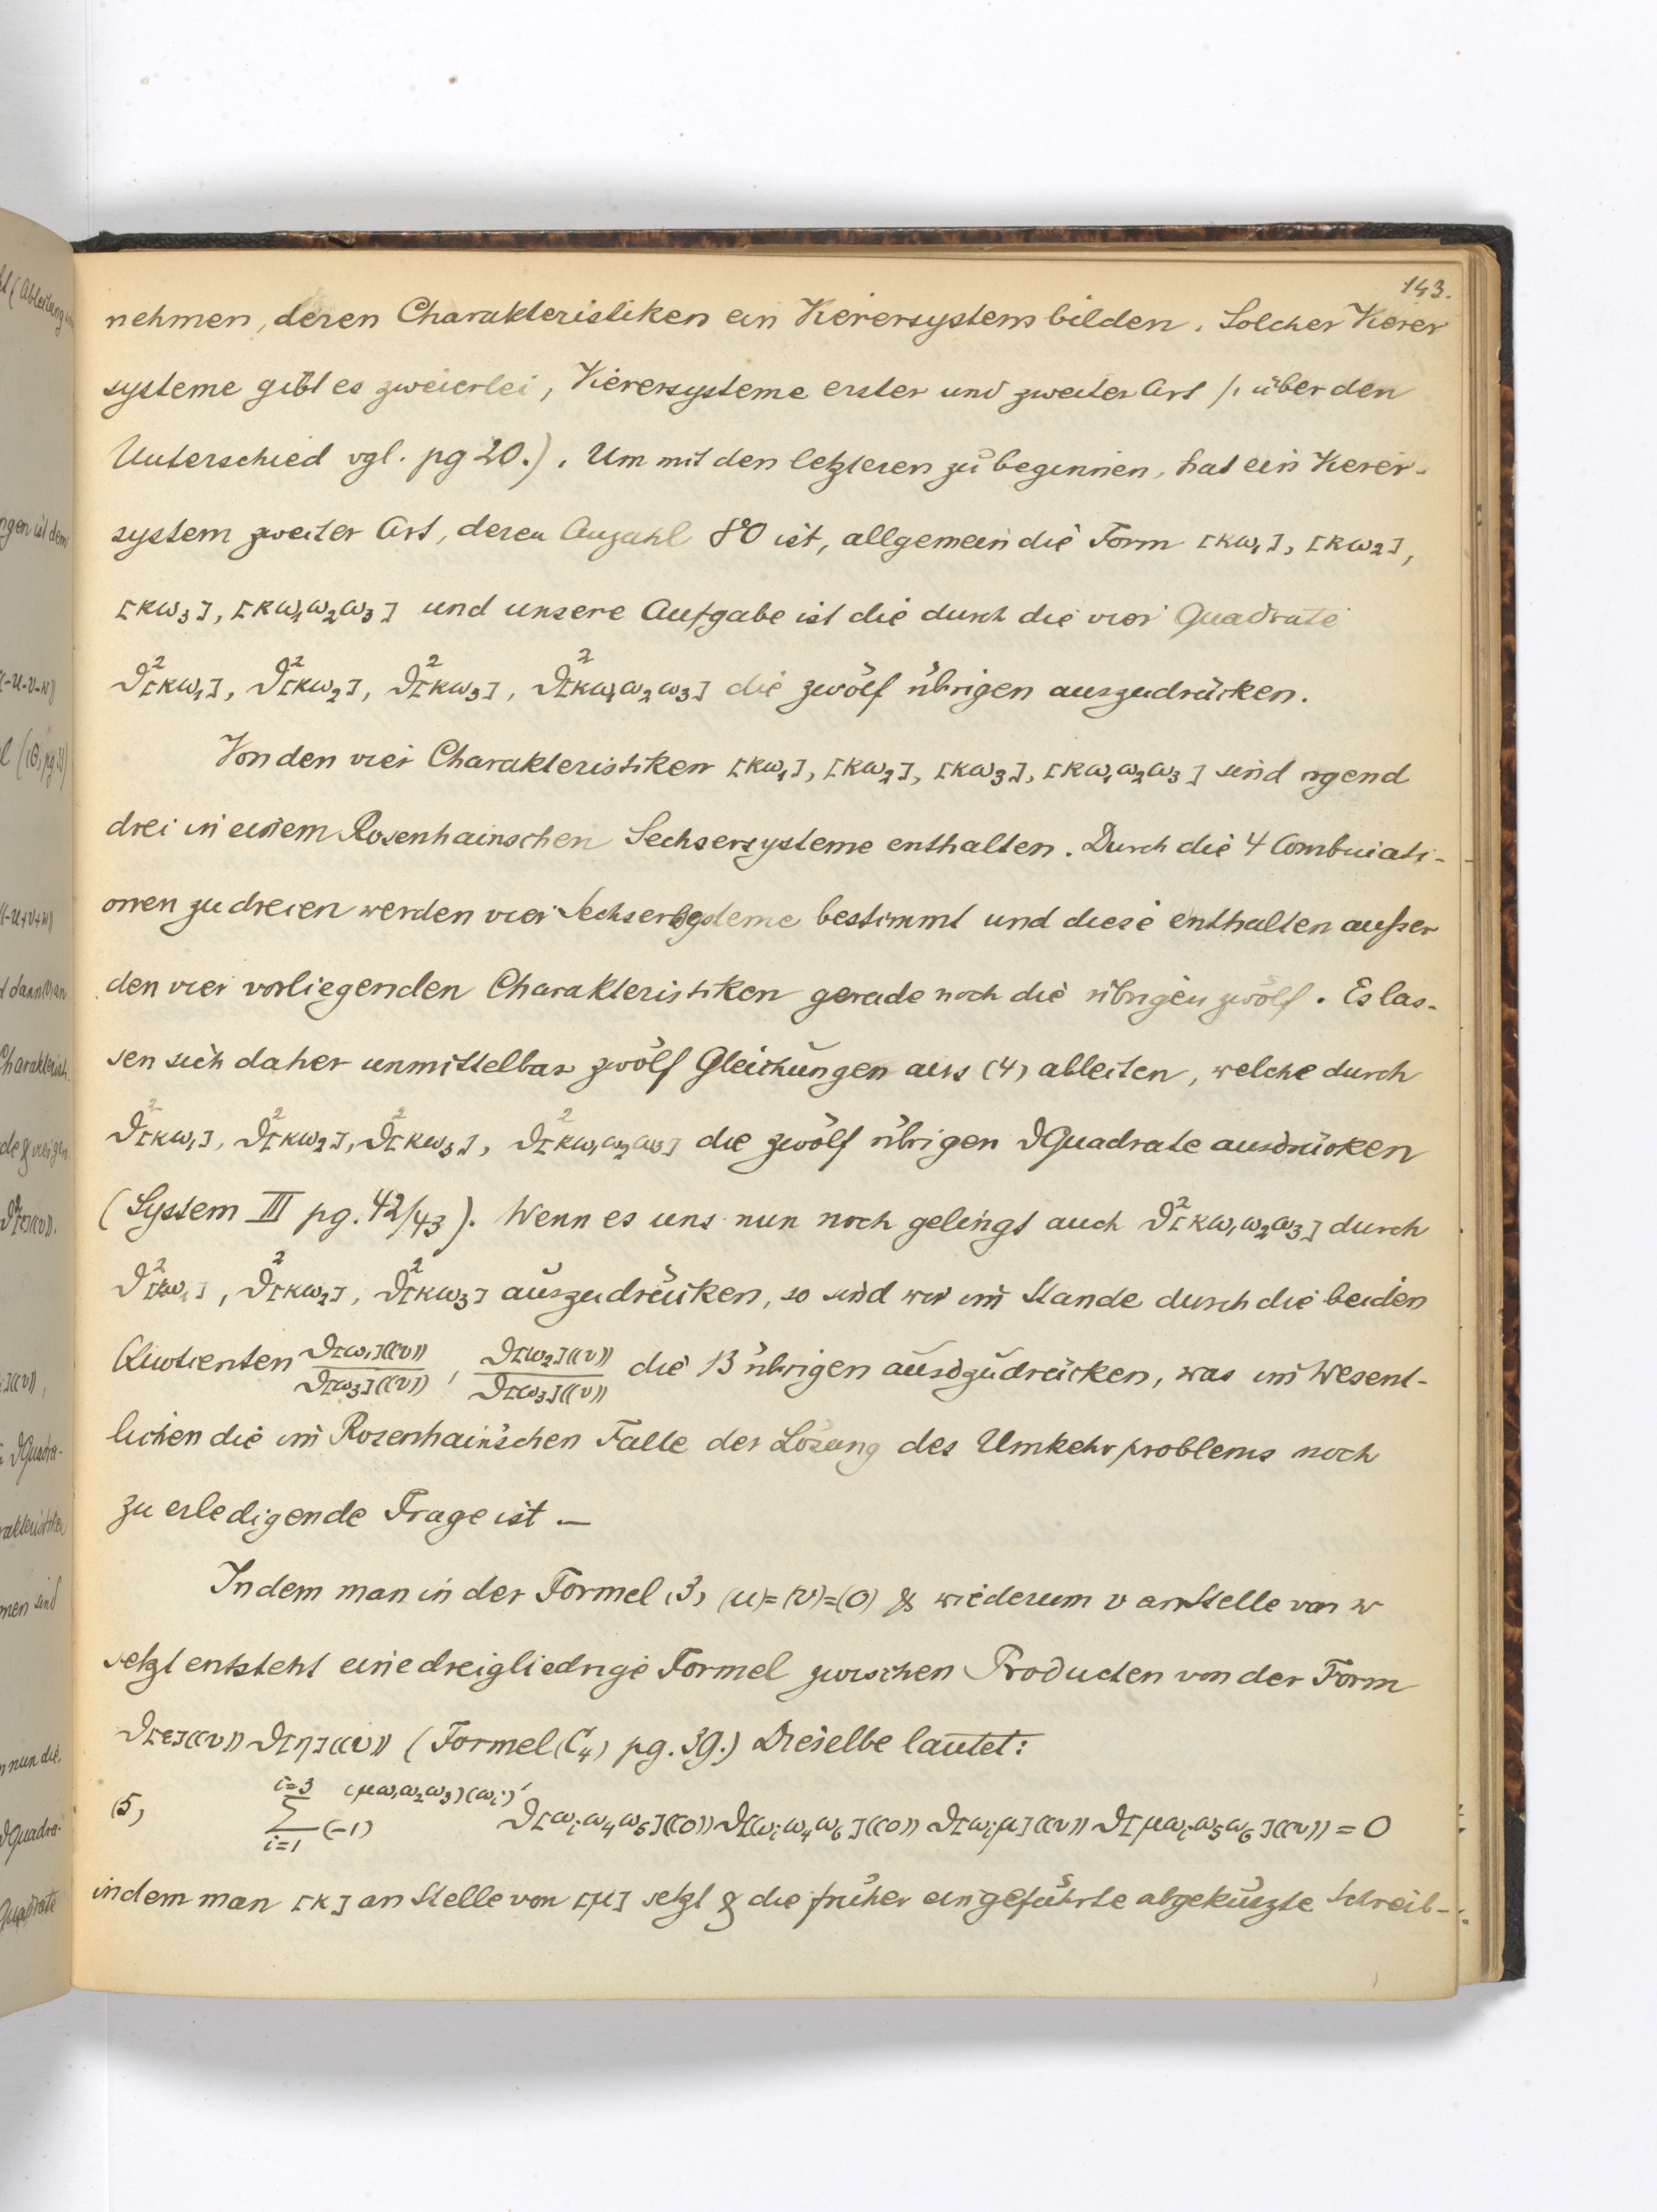 143.
nehmen, deren Charakteristiken ein Vierersystem bilden. Solcher Vierer
systeme gibt es zweierlei, Vierersysteme erster und zweiter Art /: über den
Unterschied vgl. pg 20.). Um mit den letzteren zu beginnen, hat ein Vierer-
system zweiter Art, deren Anzahl 80 ist, allgemein die Form [κω₁], [κω₂],
[κω₃], [κω₁ω₂ω₃] und unsere Aufgabe ist die durch die vier Quadrate
ϑ²[κω₁], ϑ²[κω₂], ϑ²[κω₃], ϑ²[κω₁ω₂ω₃] die zwölf übrigen auszudrücken.
Von den vier Charakteristiken [κω₁], [κω₂], [κω₃], [κω₁ω₂ω₃] sind irgend
drei in einem Rosenhainschen Sechsersysteme enthalten. Durch die 4 Combinati-
onen zu dreien werden vier Sechsersysteme bestimmt und diese enthalten außer
den vier vorliegenden Charakteristiken gerade noch die übrigen zwölf. Es las-
sen sich daher unmittelbar zwölf Gleichungen aus (4) ableiten, welche durch
ϑ²[κω₁], ϑ²[κω₂], ϑ²[κω₃], ϑ²[κω₁ω₂ω₃] die zwölf übrigen ϑQuadrate ausdrücken
(System III pg. 42/43). Wenn es uns nun noch gelingt auch ϑ²[κω₁ω₂ω₃] durch
ϑ²[κω₁], ϑ²[κω₂], ϑ²[κω₃] auszudrücken, so sind wir im Stande durch die beiden
Quotienten ϑ[ω₁]((v))/ϑ[ω₃]((v)), ϑ[ω₂]((v))/ϑ[ω₃]((v)) die 13 übrigen auszudrücken, was im Wesent-
lichen die im Rosenhain'schen Falle der Lösung des Umkehrproblems noch
zu erledigende Frage ist. —
Indem man in der Formel (3) (u)=(v)=(0) & wiederum v an Stelle von w
setzt entsteht eine dreigliedrige Formel zwischen Producten von der Form
ϑ[ε]((v)) ϑ[η]((v)) (Formel (C₄) pg. 39.) Dieselbe lautet:
(5) Σ_{i=1}^{i=3} (-1)^{(μω₁ω₂ω₃)(ωᵢ)'} ϑ[ωᵢω₄ω₅]((0)) ϑ[ωᵢω₄ω₆]((0)) ϑ[ωᵢμ]((v)) ϑ[μωᵢω₅ω₆]((v)) = 0
indem man [κ] an Stelle von [μ] setzt & die früher eingeführte abgekürzte Schreib-